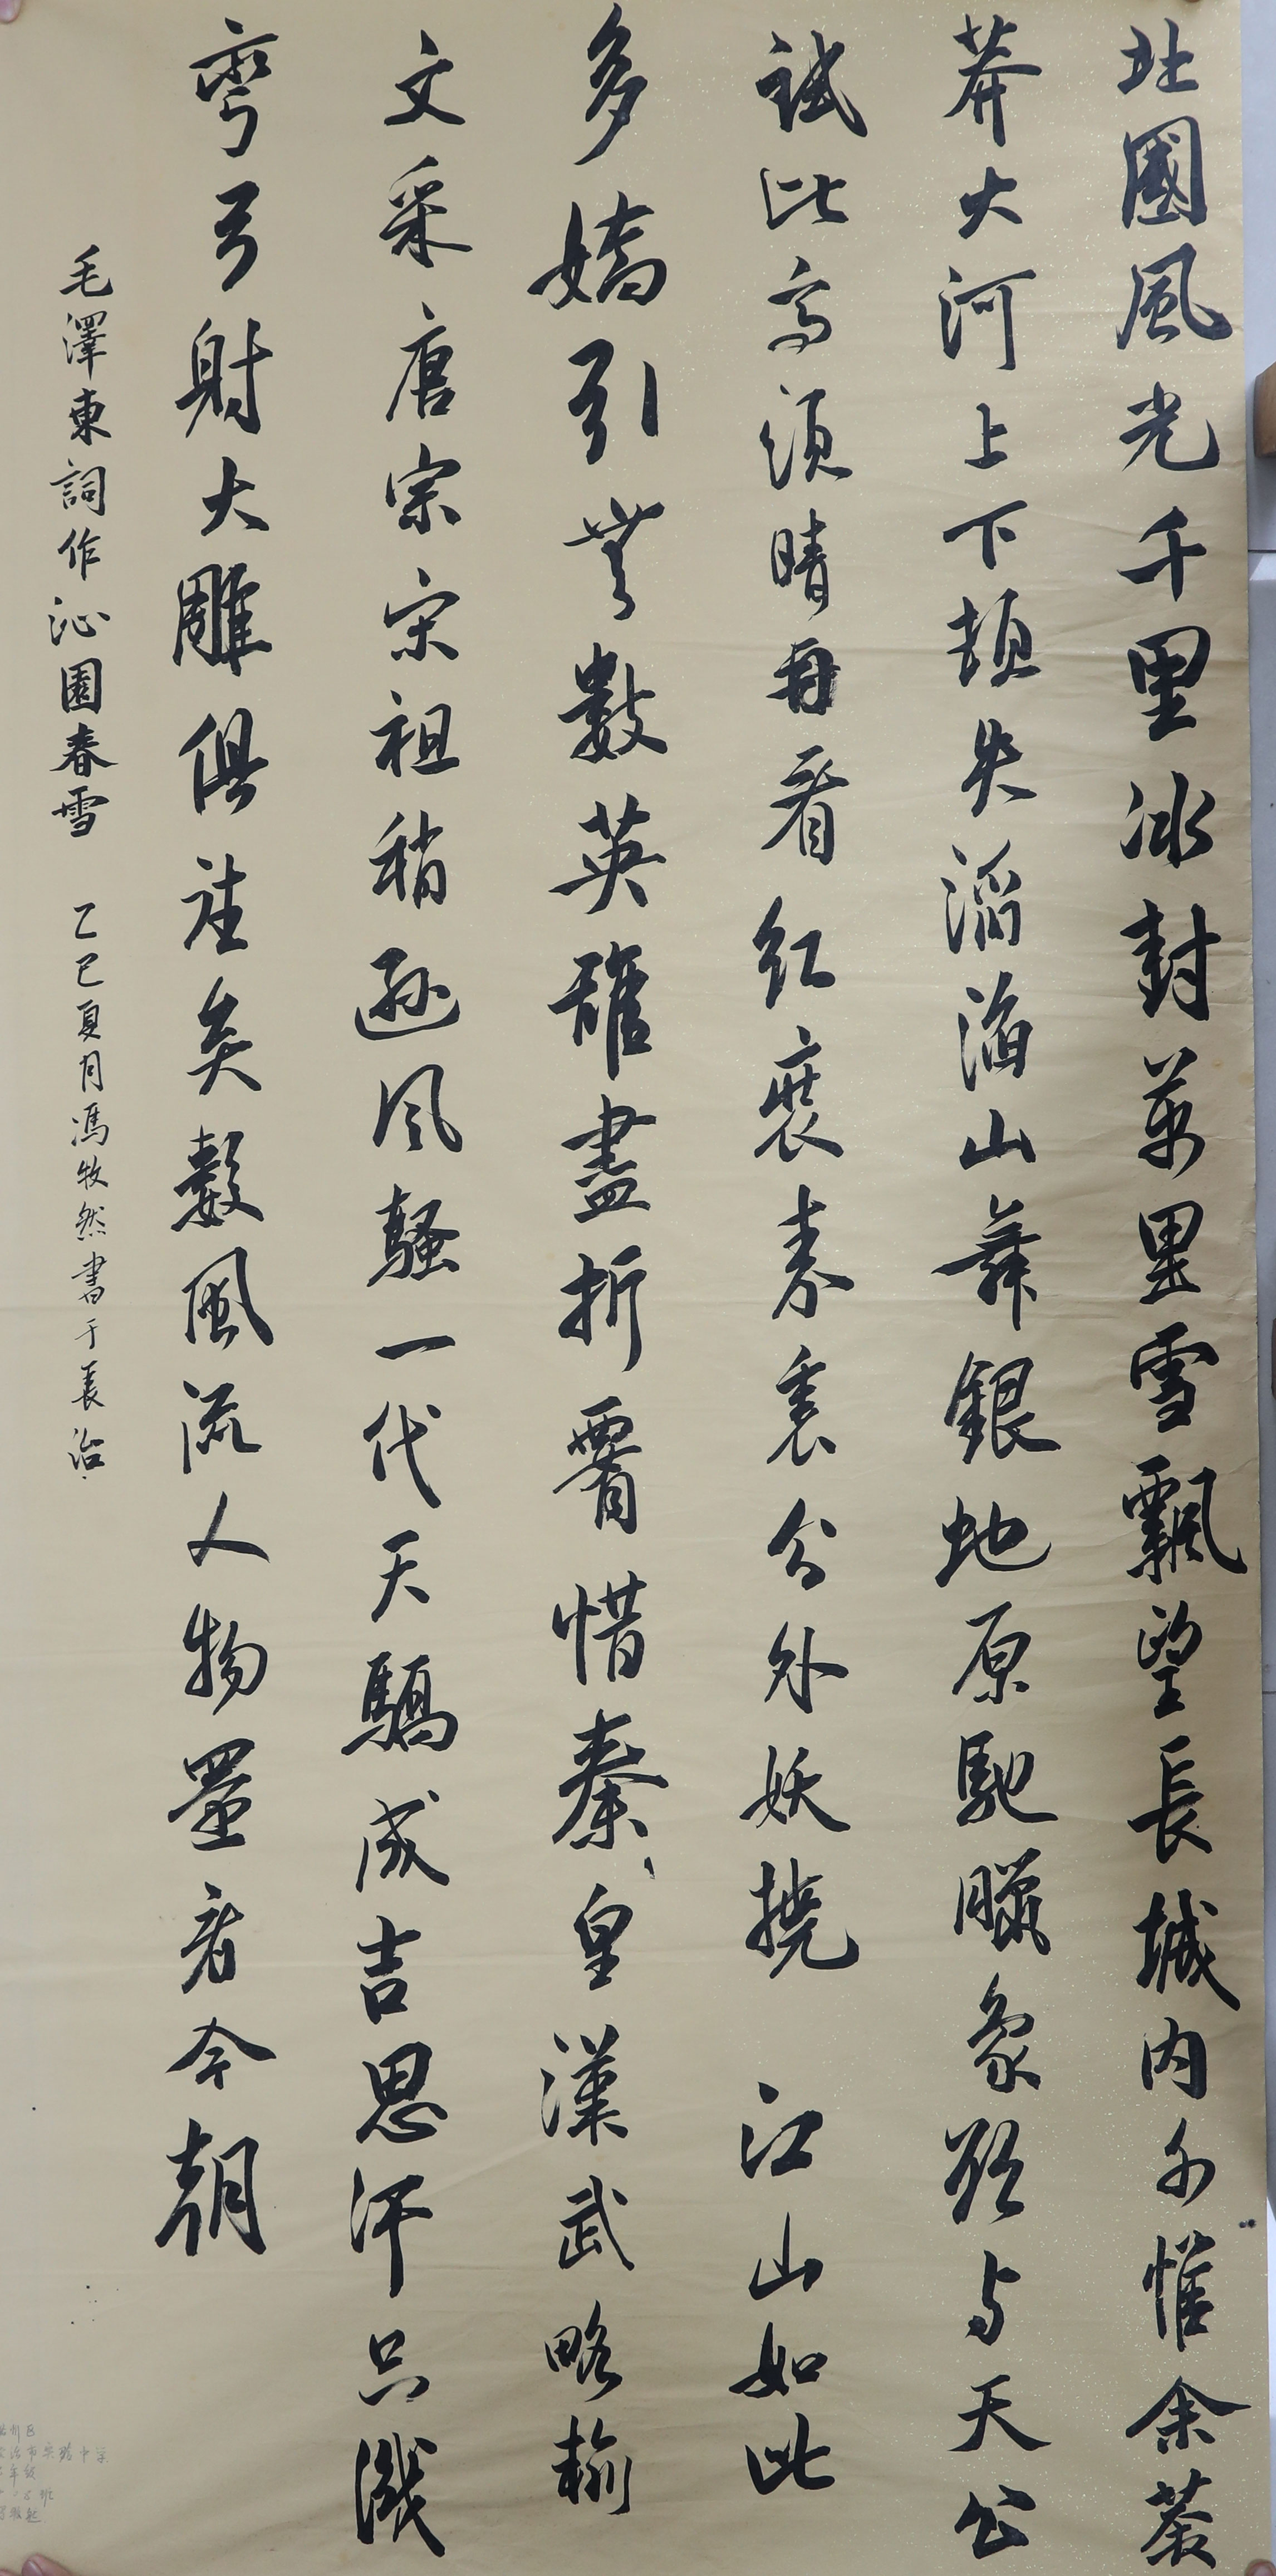 北國風光千里冰封萬里雪飄望長城内外惟余莽
莽大河上下頓失滔滔山舞銀虵原馳臘象欲与天公
試比高須晴看红裝素裹分外妖撓 江山如此
多嬌引無數英雄盡折腰惜秦皇漢武略輸
文采唐宗宋祖稍遜风騷一代天驕成吉思汗只識
彎弓射大雕俱往矣數風流人物還看今朝
毛澤東詞作沁園春雪 乙巳夏月馮牧然書于長治
州区
治市实验中学
年级
班
牧然